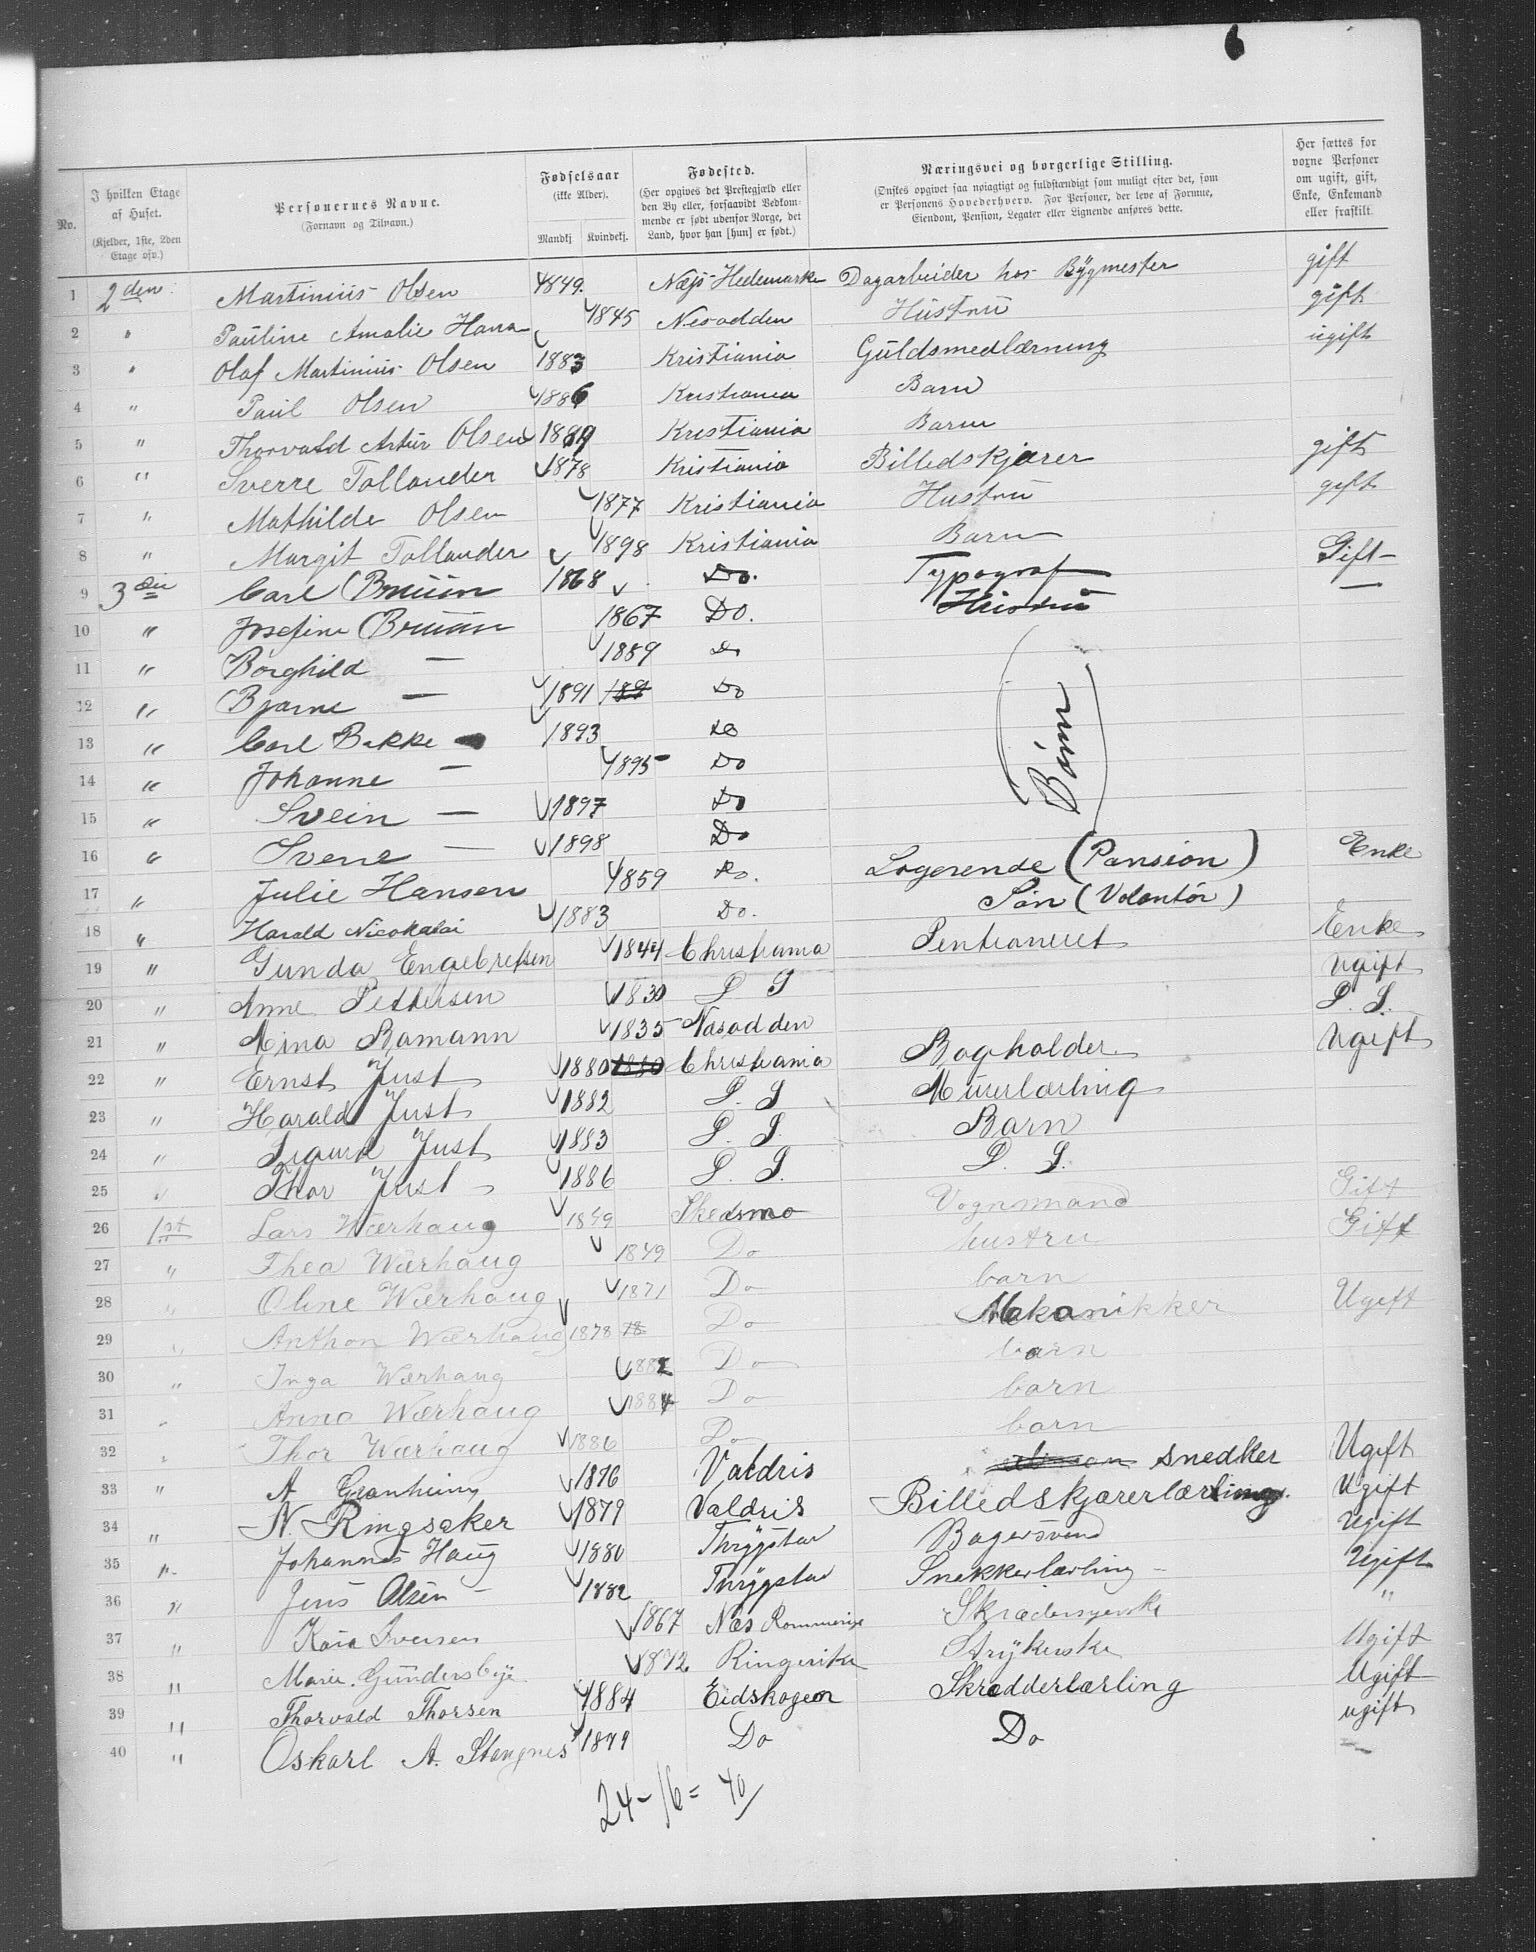 6
No.
I hvilken Etage af Huset. (Kjelder, 1ste, 2den Etage osv.)
Personernes Navne. (Fornavn og Tilnavn.)
Fødselsaar (ikke Alder). Mandkj. Kvindekj.
Fødested. (Her opgives det Prestegjæld eller den By eller, forsaavidt Vedkommende er født udenfor Norge, det Land, hvor han [hun] er født.)
Næringsvei og borgerlige Stilling. (Ønskes opgivet saa nøiagtigt og fuldstændigt som muligt efter det, som er Personens Hovederhverv. For Personer, der leve af Formue, Eiendom, Pension, Legater eller Lignende anføres dette.
Her sættes for voxne Personer om ugift, gift, Enke, Enkemand eller fraskilt.
1 2den Martinius Olsen 1849. Næs Hedemarke Dagarbeider hos Bygmester gift
2 " Pauline Amalie Hana 1845 Nesodden Hustru gift
3 " Olaf Martinius Olsen 1883 Kristiania Guldsmedlærning ugift
4 " Paul Olsen 1886 Kristiania Barn
5 " Thorvald Artur Olsen 1889 Kristiania Barn
6 " Sverre Tollander 1878 Kristiania Billedskjærer gift
7 " Mathilde Olsen 1877 Kristiania Hustru gift
8 " Margit Tollander 1898 Kristiania Barn
9 3die Carl Bruun 1868 Do. Typograf Gift
10 " Josefine Bruun 1867 Do. Hustru —
11 " Borghild — 1889 Do
12 " Bjarne — 1891 189 Do
13 " Carl Bakke 1893 Do
14 " Johanne — 1895 Do
15 " Svein — 1897 Do
(Børn)
16 " Sverre — 1898 Do
17 " Julie Hansen 1859 Do. Logerende (Pansion) Enke
18 " Harald Nicokalai 1883 Do. Søn (Volontør)
19 " Gunda Engebretsen 1844 Christiania Pentioneret Enke
20 " Anne Pettersen 1830 D D Ugift
21 " Mina Bamann 1835 Nasodden D D.
22 " Ernst Just 1880 1880 Christiania Bogholder Ugift
23 " Harald Just 1882 D. D Murerlærling
24 " Sigurd Just 1883 D. D. Barn
25 " Thor Just 1886 D. D. D. D.
26 1st Lars Wærhaug 1849 Skedsmo Vognmand Gift
27 " Thea Wærhaug 1849 Do hustru Gift
28 " Oline Wærhaug 1871 Do barn
29 " Anthon Wærhaug 1878 18 Do Mekanikker Ugift
30 " Inga Wærhaug 1882 Do barn
31 " Anna Wærhaug 1884 Do barn
32 " Thor Wærhaug 1886 Do barn
33 " A Granheim 1876 Valdris snedker Ugift
34 " N. Ringsaker 1879 Valdris Billedskjærerlærling. Ugift
35 " Johannes Haug 1880 Thrygstar Bagersvend Ugift
36 " Jens Olsen 1882 Thrygstar Snekkerlærling Ugift
37 " Kaia Iversen 1867 Næs Rommerige Skrædersyerske "
38 " Marie Gundersbye 1872 Ringerike Strykerske Ugift
39 " Thorvald Thorsen 1884 Eidskogen Skrædderlærling Ugift
40 " Oskarl A. Stangnes 1879 Do Do ugift
24 - 16 = 40